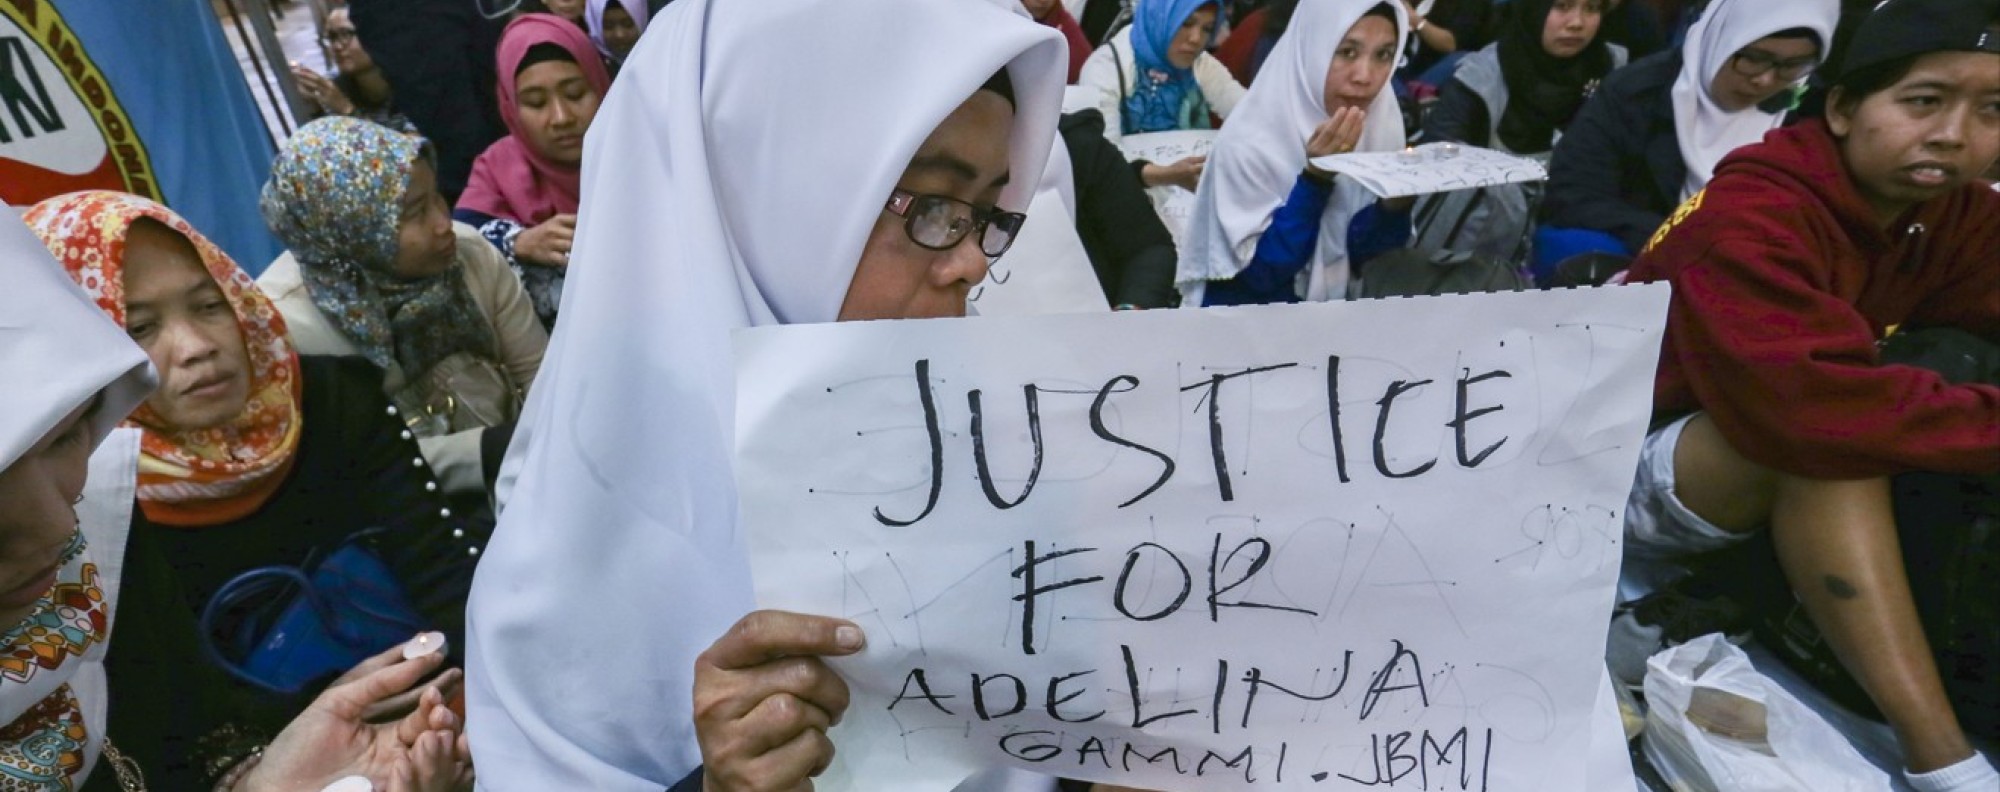 INDONE
JUSTICE
FOR
ADELINA
GAMMI. JBMI